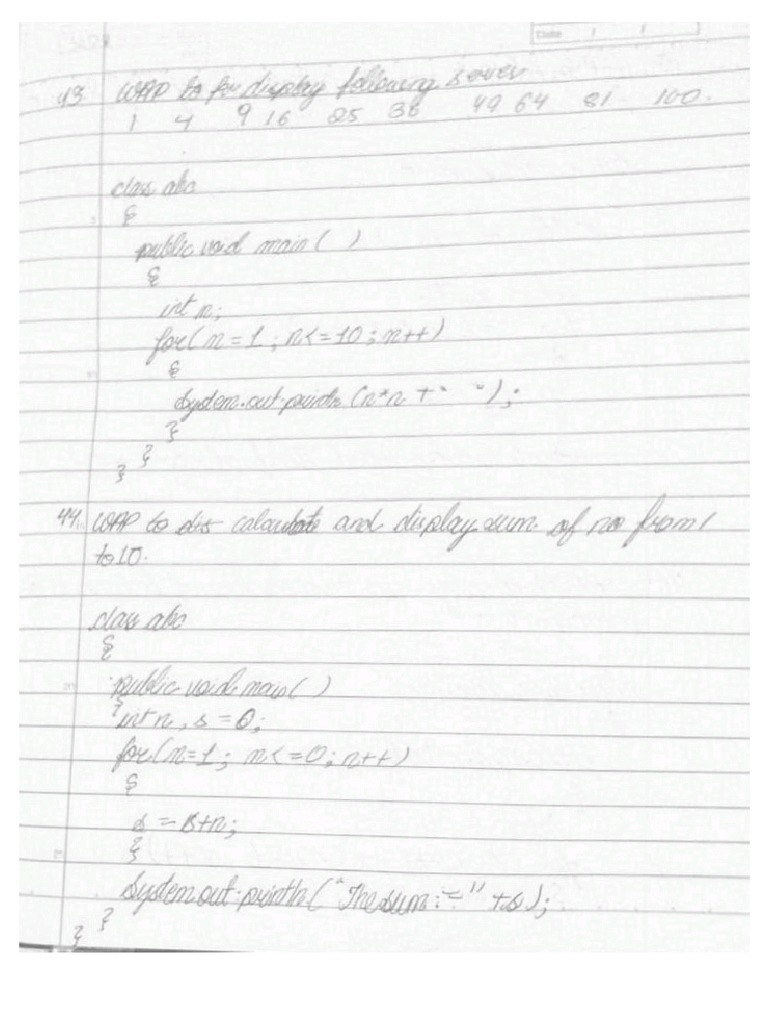 Date
43 WAP to for display following series
1 4 9 16 25 36 49 64 81 100.
class abc
{
public void main( )
{
int n;
for( n = 1 ; n<=10 ; n++)
{
System.out.println (n*n + " ");
}
}
}
44. WAP to dis calculate and display sum of no from 1
to 10.
class abc
{
public void main( )
{
int n , s = 0;
for(n=1; n<=0; n++)
{
s = s+n;
}
System.out.println("The sum :=" +s);
}
}